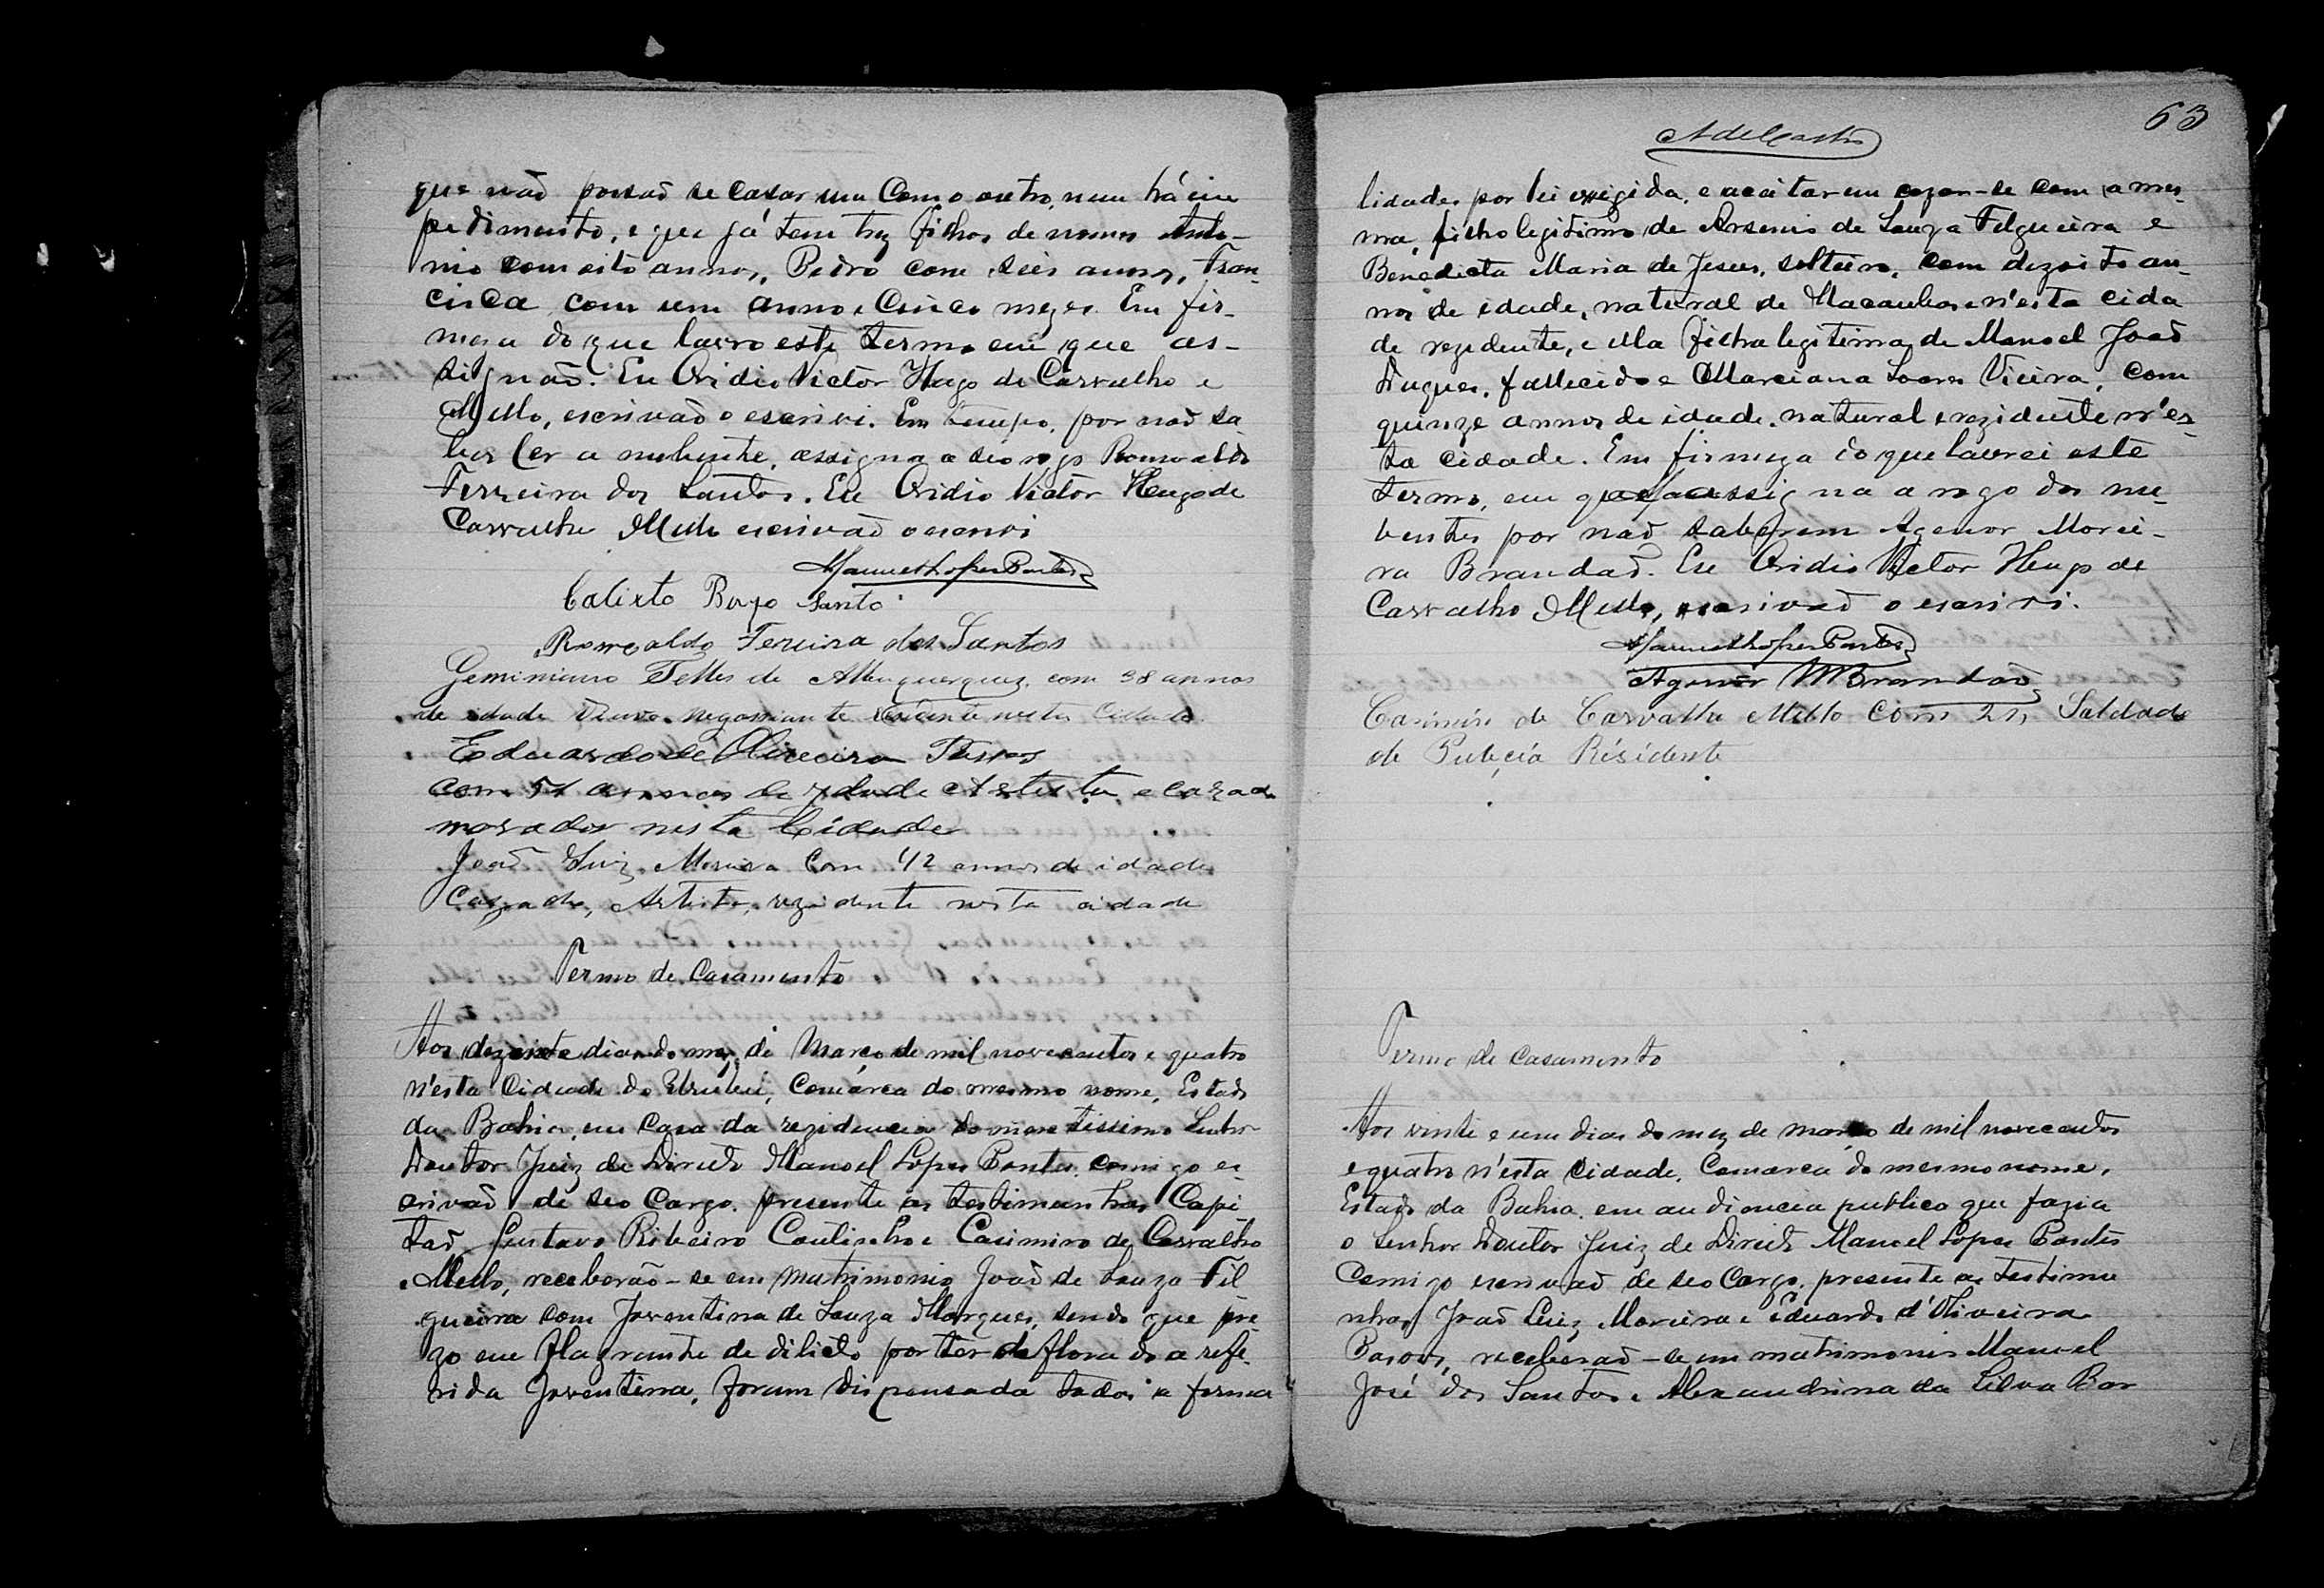 que não possaõ se casar um Com o outro, nem há im
pedimento, e que já tem trez filhos de nomes Anto-
nio com oito annos, Pedro com seis annos, Fran-
cisca com um anno e Cinco mezes. Em fir-
mesa do que lavro este termo em que as-
signaõ. Eu Ovidio Victor Hugo de Carvalho e
Mello, escrivaõ o escrivi. Em tempo, por naõ sa
ber ler a nubente, assigna a seo rogo Romualdo
Ferreira dos Santos. Eu Ovidio Victor Hugo de
Carvalho Mello escrivaõ o escrivi
Manuel Lopes Pontes
Calixto Santo
Romoaldo Fereira dos Santos
Geminiano Telles de Albuquerque, com 38 annos
de idade Viuvo Negossiante residente nesta Cidade
Eduardo de Oliveira
com 51 annos de ydade Artista e Cazado
morador nesta Cidade
Joaõ Luiz Moreira Com 42 annos de idade
Cazado, Artista, rezidente nesta cidade
Termo de Casamento
Aos dezesete dias do mez de Março de mil novecentos e quatro
n'esta Cidade do Urubú, Comarca do mesmo nome, Estado
da Bahia, em Casa da rezidencia do meretissimo Senhor
Doutor Juiz de Direito Manoel Lopes Pontes comigo es
crivaõ de seo Cargo, presente as testimunhas Capi
taõ Gustavo Ribeiro Coutinho e Casimiro de Carvalho
Mello, receberão-se em matrimonio Joaõ de Souza Fil
gueira com Joventina de Souza Marques, sendo que pre
zo em flagrante de dilicto por ter deflorado a refe-
rida Joventina, foram dispensada todas a forma
63
A de Castro
lidades por lei exegida, e aceitarem cazar-se com a mes-
ma, filho legitimo de Arsenio de Souza Filgueira e
Benedicta Maria de Jesus, solteiro, com dezoito an-
nos de idade, natural de Macaubas e n'esta cida
de rezidente, e ella filha legitima de Manoel Joaõ
fallecido e Marciana Soares Vieira, com
quinze annos de idade, natural e rezidente n'es-
ta cidade. Em firmeza do que lavrei este
termo, em que assigna a rogo dos nu-
bentes por naõ saberem Agenor Morei-
ra Brandaõ. Eu Ovidio Victor Hugo de
Carvalho Mello, escrivaõ o escrivi.
Manuel Lopes Pontes
Agenor M Brandaõ
Casimiro de Carvalho Mello Com 21, Saldado
de Puliçia Résidente
Termo de Casamento
Aos vinte e um dias do mez de março de mil novecentos
e quatro n'esta Cidade, Comarca do mesmo nome,
Estado da Bahia, em audiencia publico que fazia
o Senhor Doutor Juiz de Direito Manoel Lopes Pontes
Comigo escrivaõ de seo Cargo, presente as testimu
nhas Joaõ Luiz Moreira e Eduardo d'Oliveira
receberaõ-se em matrimonio Manoel
José dos Santos e Alexandrina da Silva Bar